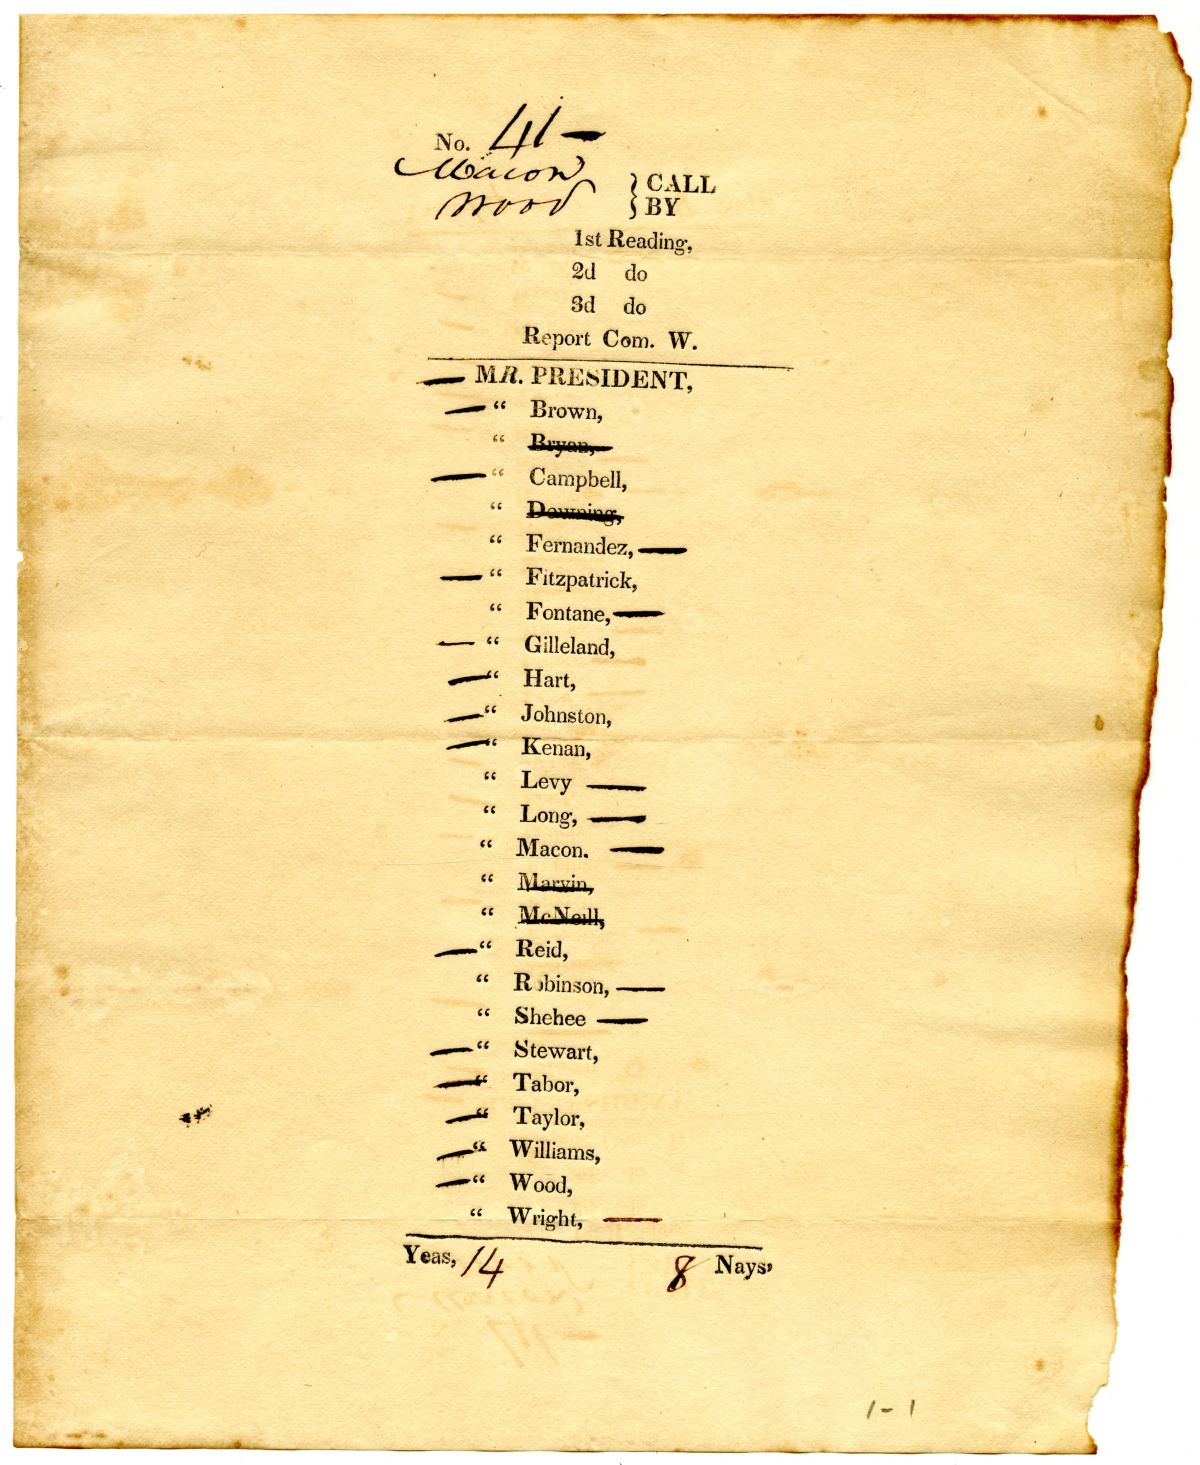 No. 41 —
Macon
Wood } CALL BY
1st Reading,
2d do
3d do
Report Com. W.
— MR. PRESIDENT,
— “ Brown,
“ Bryan,
— “ Campbell,
“ Downing,
“ Fernandez, —
— “ Fitzpatrick,
“ Fontane, —
— “ Gilleland,
— “ Hart,
— “ Johnston,
— “ Kenan,
“ Levy —
“ Long, —
“ Macon. —
“ Marvin,
“ McNeill,
— “ Reid,
“ Robinson, —
“ Shehee —
— “ Stewart,
— “ Tabor,
— “ Taylor,
— “ Williams,
— “ Wood,
“ Wright, —
Yeas, 14 8 Nays,
1-1